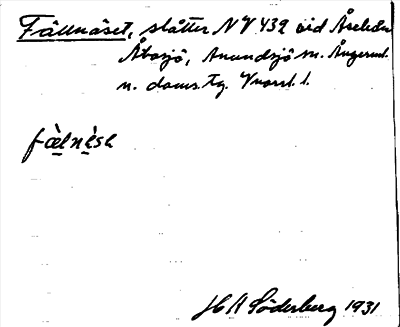 Fällnäset, slåtter NV 432 vid Åsele
Åbosjö, Anundsjö sn. Ångerml.
n. doms. tg.
fälnèsɛ
H A Söderberg 1931